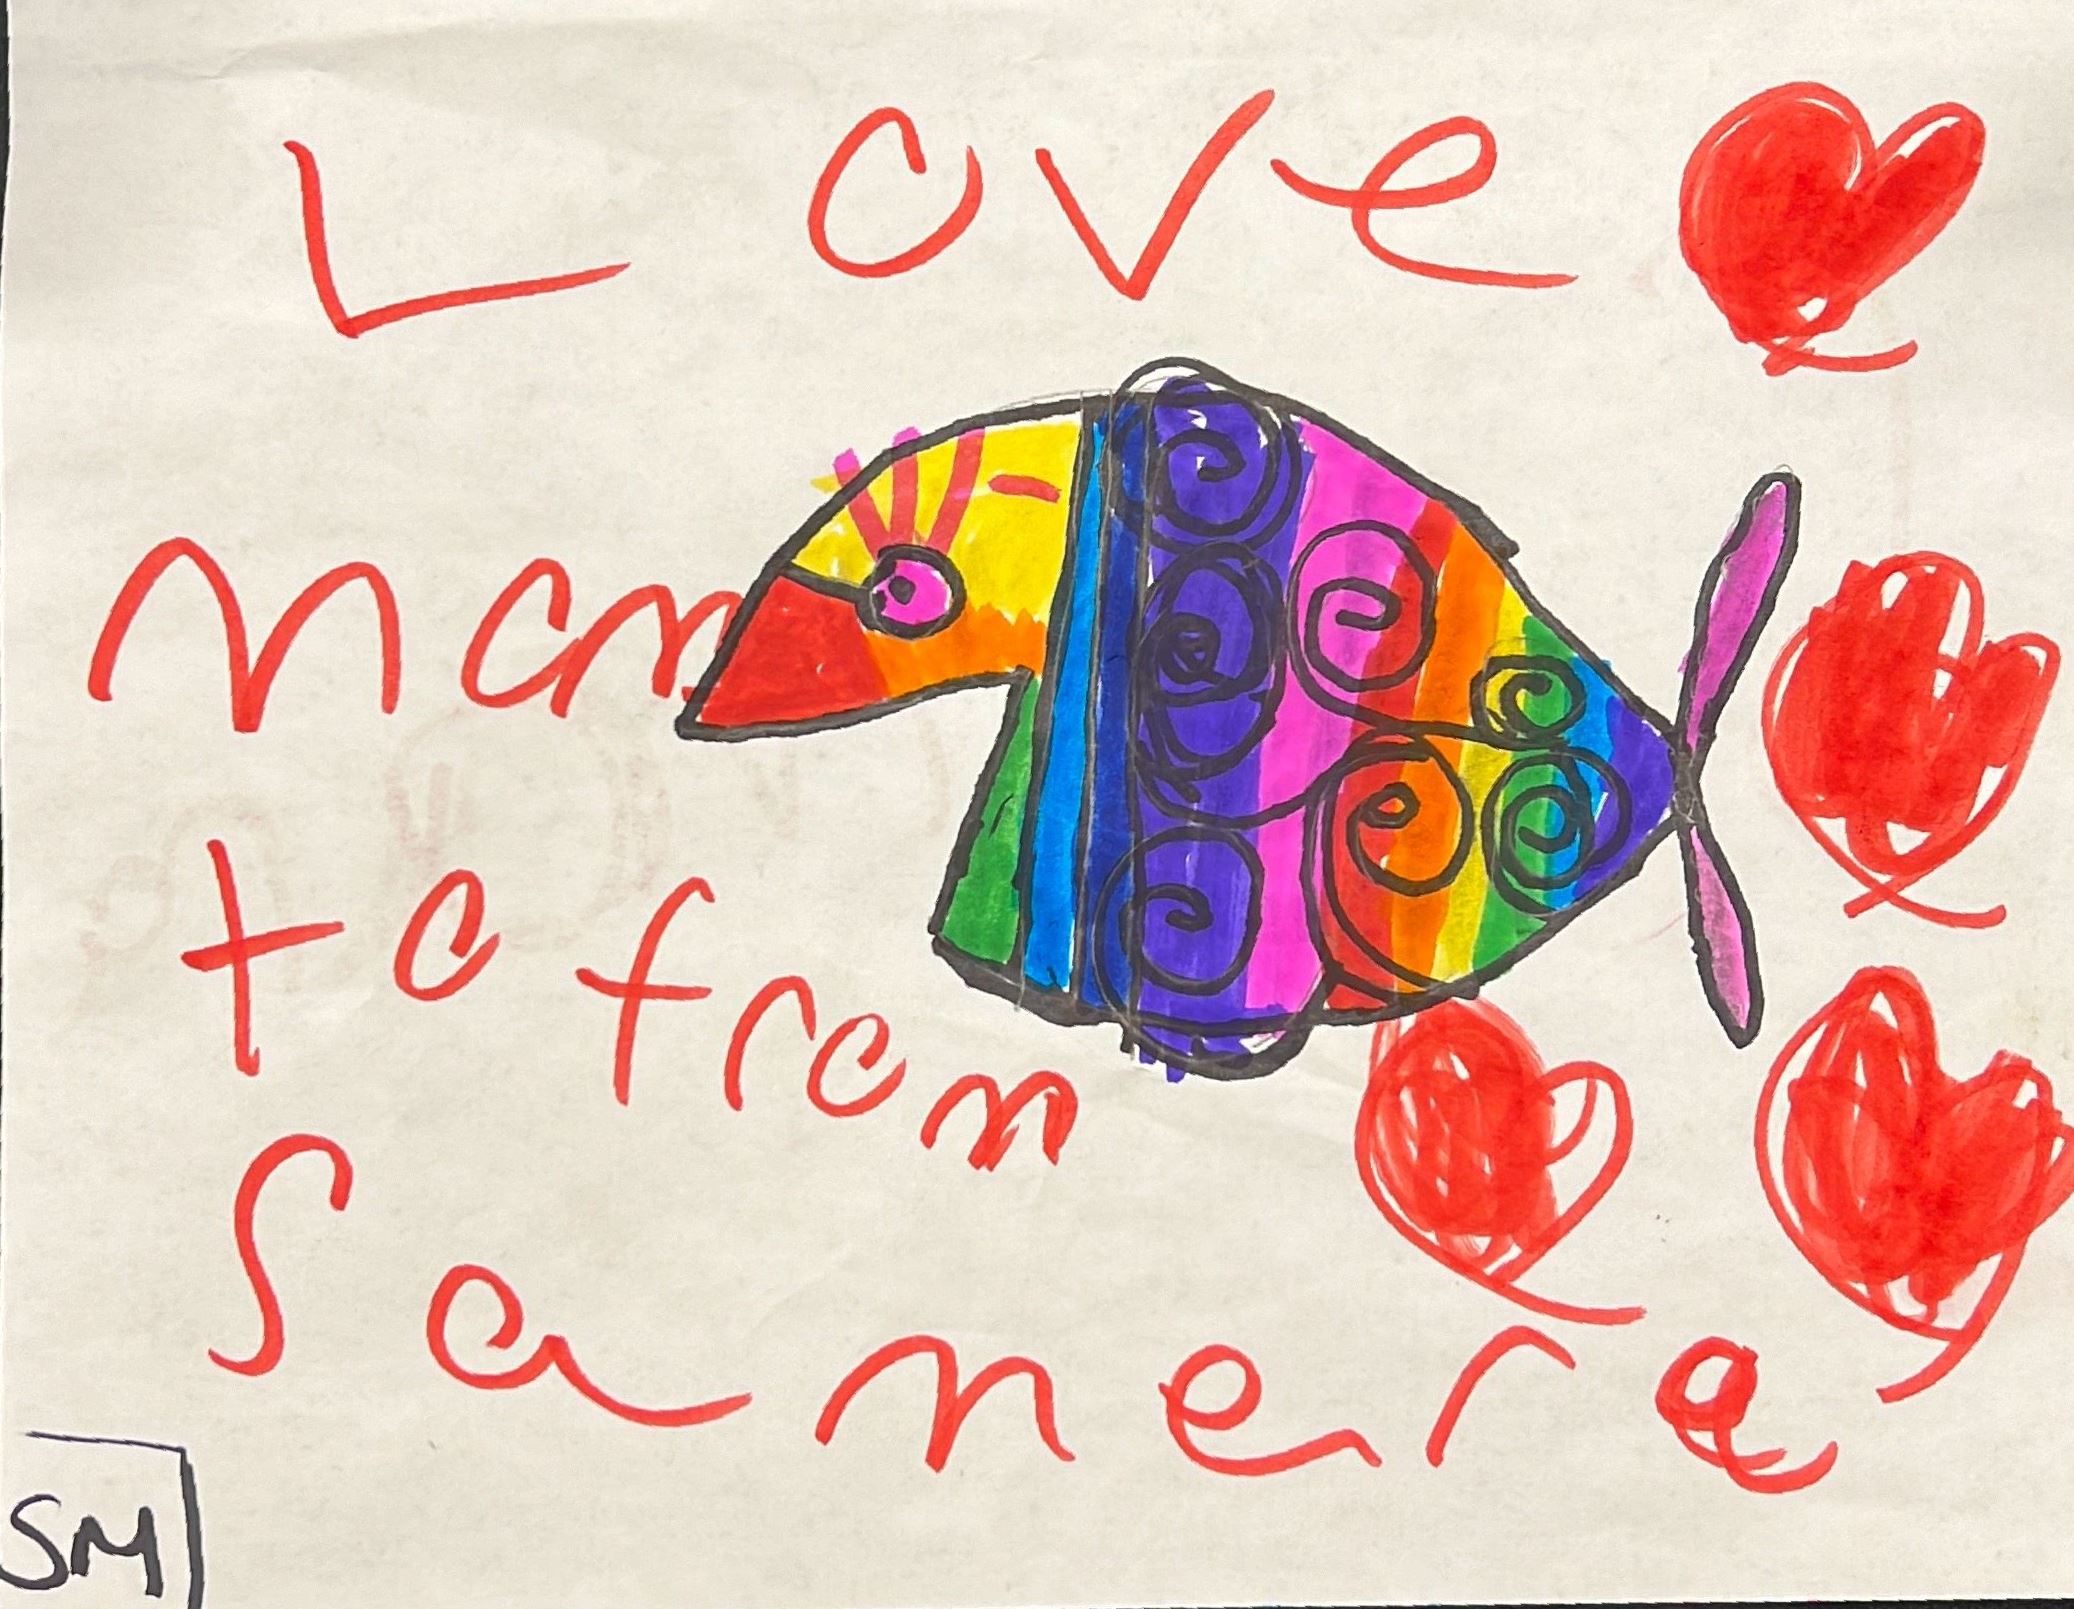 Love
mom
to from
Sanera
SM